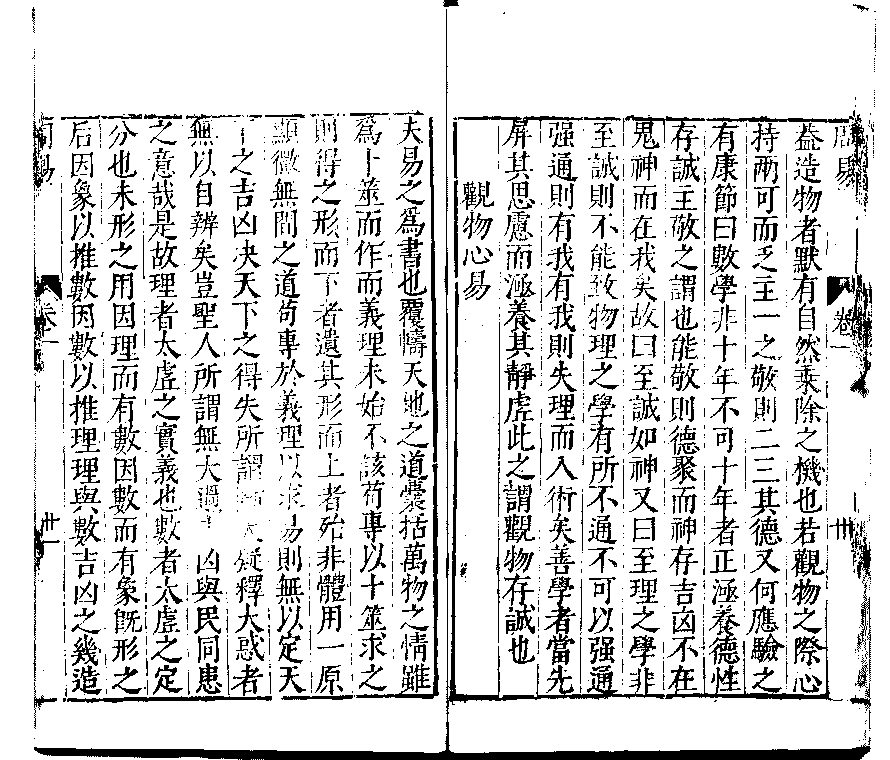 周易
卷一
卅
益造物者默有自然乘除之機也若觀物之際心
持兩可而乏主一之敬則二三其德又何應驗之
有康節曰數學非十年不可十年者正涵養德性
存誠主敬之謂也能敬則德聚而神存吉凶不在
鬼神而在我矣故曰至誠如神又曰至理之學非
至誠則不能致物理之學有所不通不可以强通
强通則有我有我則失理而入術矣善學者當先
屏其思慮而涵養其靜虛此之謂觀物存誠也
觀物心易
夫易之爲書也覆幬天地之道囊括萬物之情雖
爲卜筮而作而義理未始不該苟專以卜筮求之
則得之形而下者遺其形而上者殆非體用一原
顯微無間之道苟專於義理以求易則無以定天
下之吉凶决天下之得失所謂 疑釋大惑者
無以自辨矣豈聖人所謂無大過 凶與民同患
之意哉是故理者太虛之實義也數者太虛之定
分也未形之用因理而有數因數而有象旣形之
后因象以推數因數以推理理與數吉凶之幾造
周易
卷一
卅一